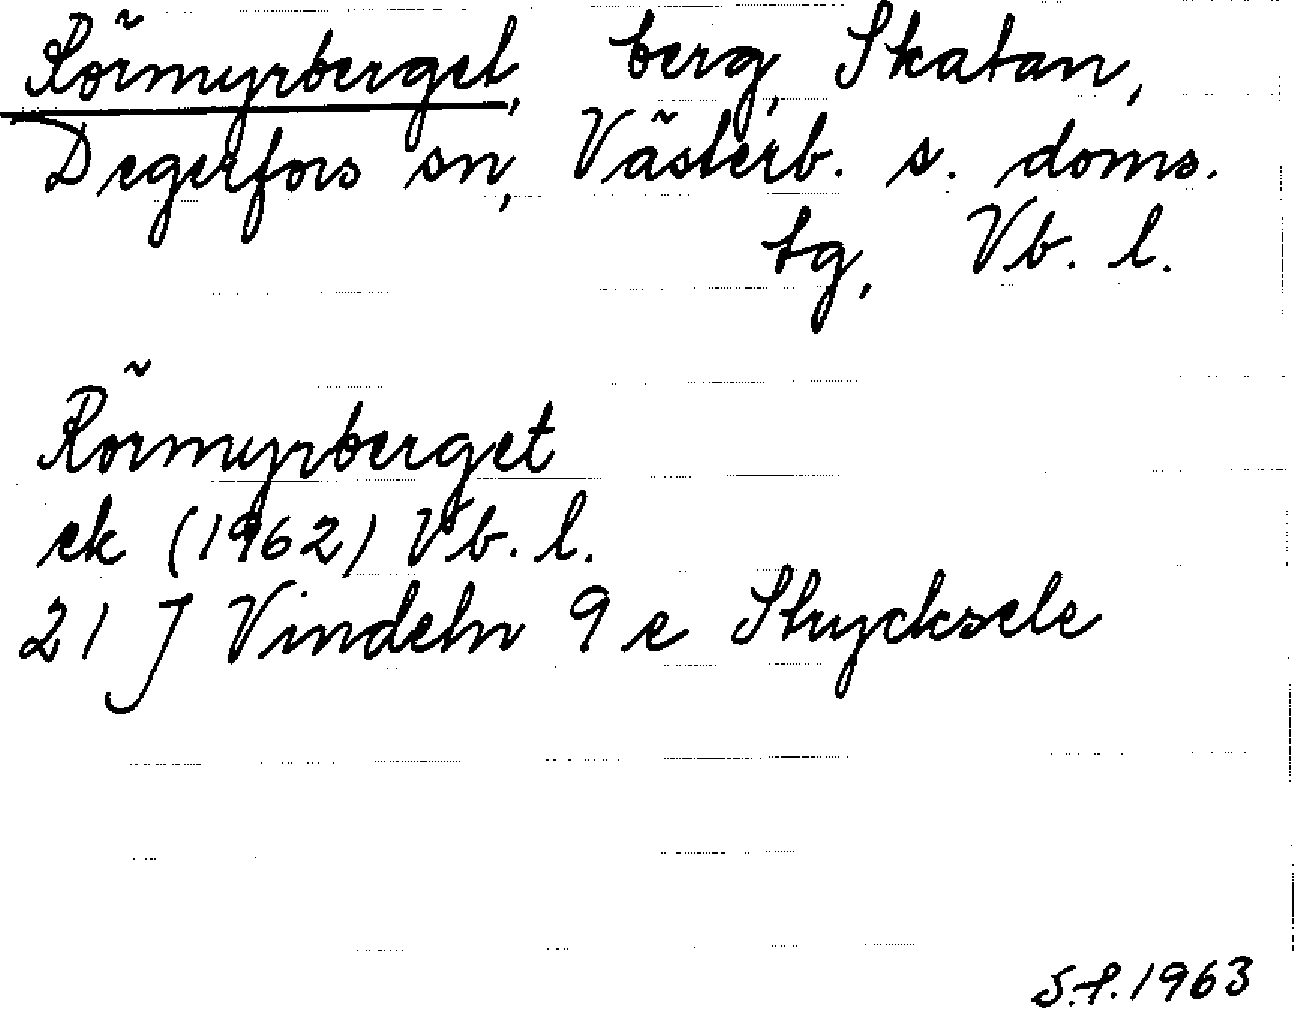 Rörmyrberget, berg, Skatan,
Degerfors sn, Västerb. s. doms.
tg, Vb. l.
Rörmyrberget
ek (1962) Vb. l.
21 J Vindeln 9 e Strycksele
S.F. 1963